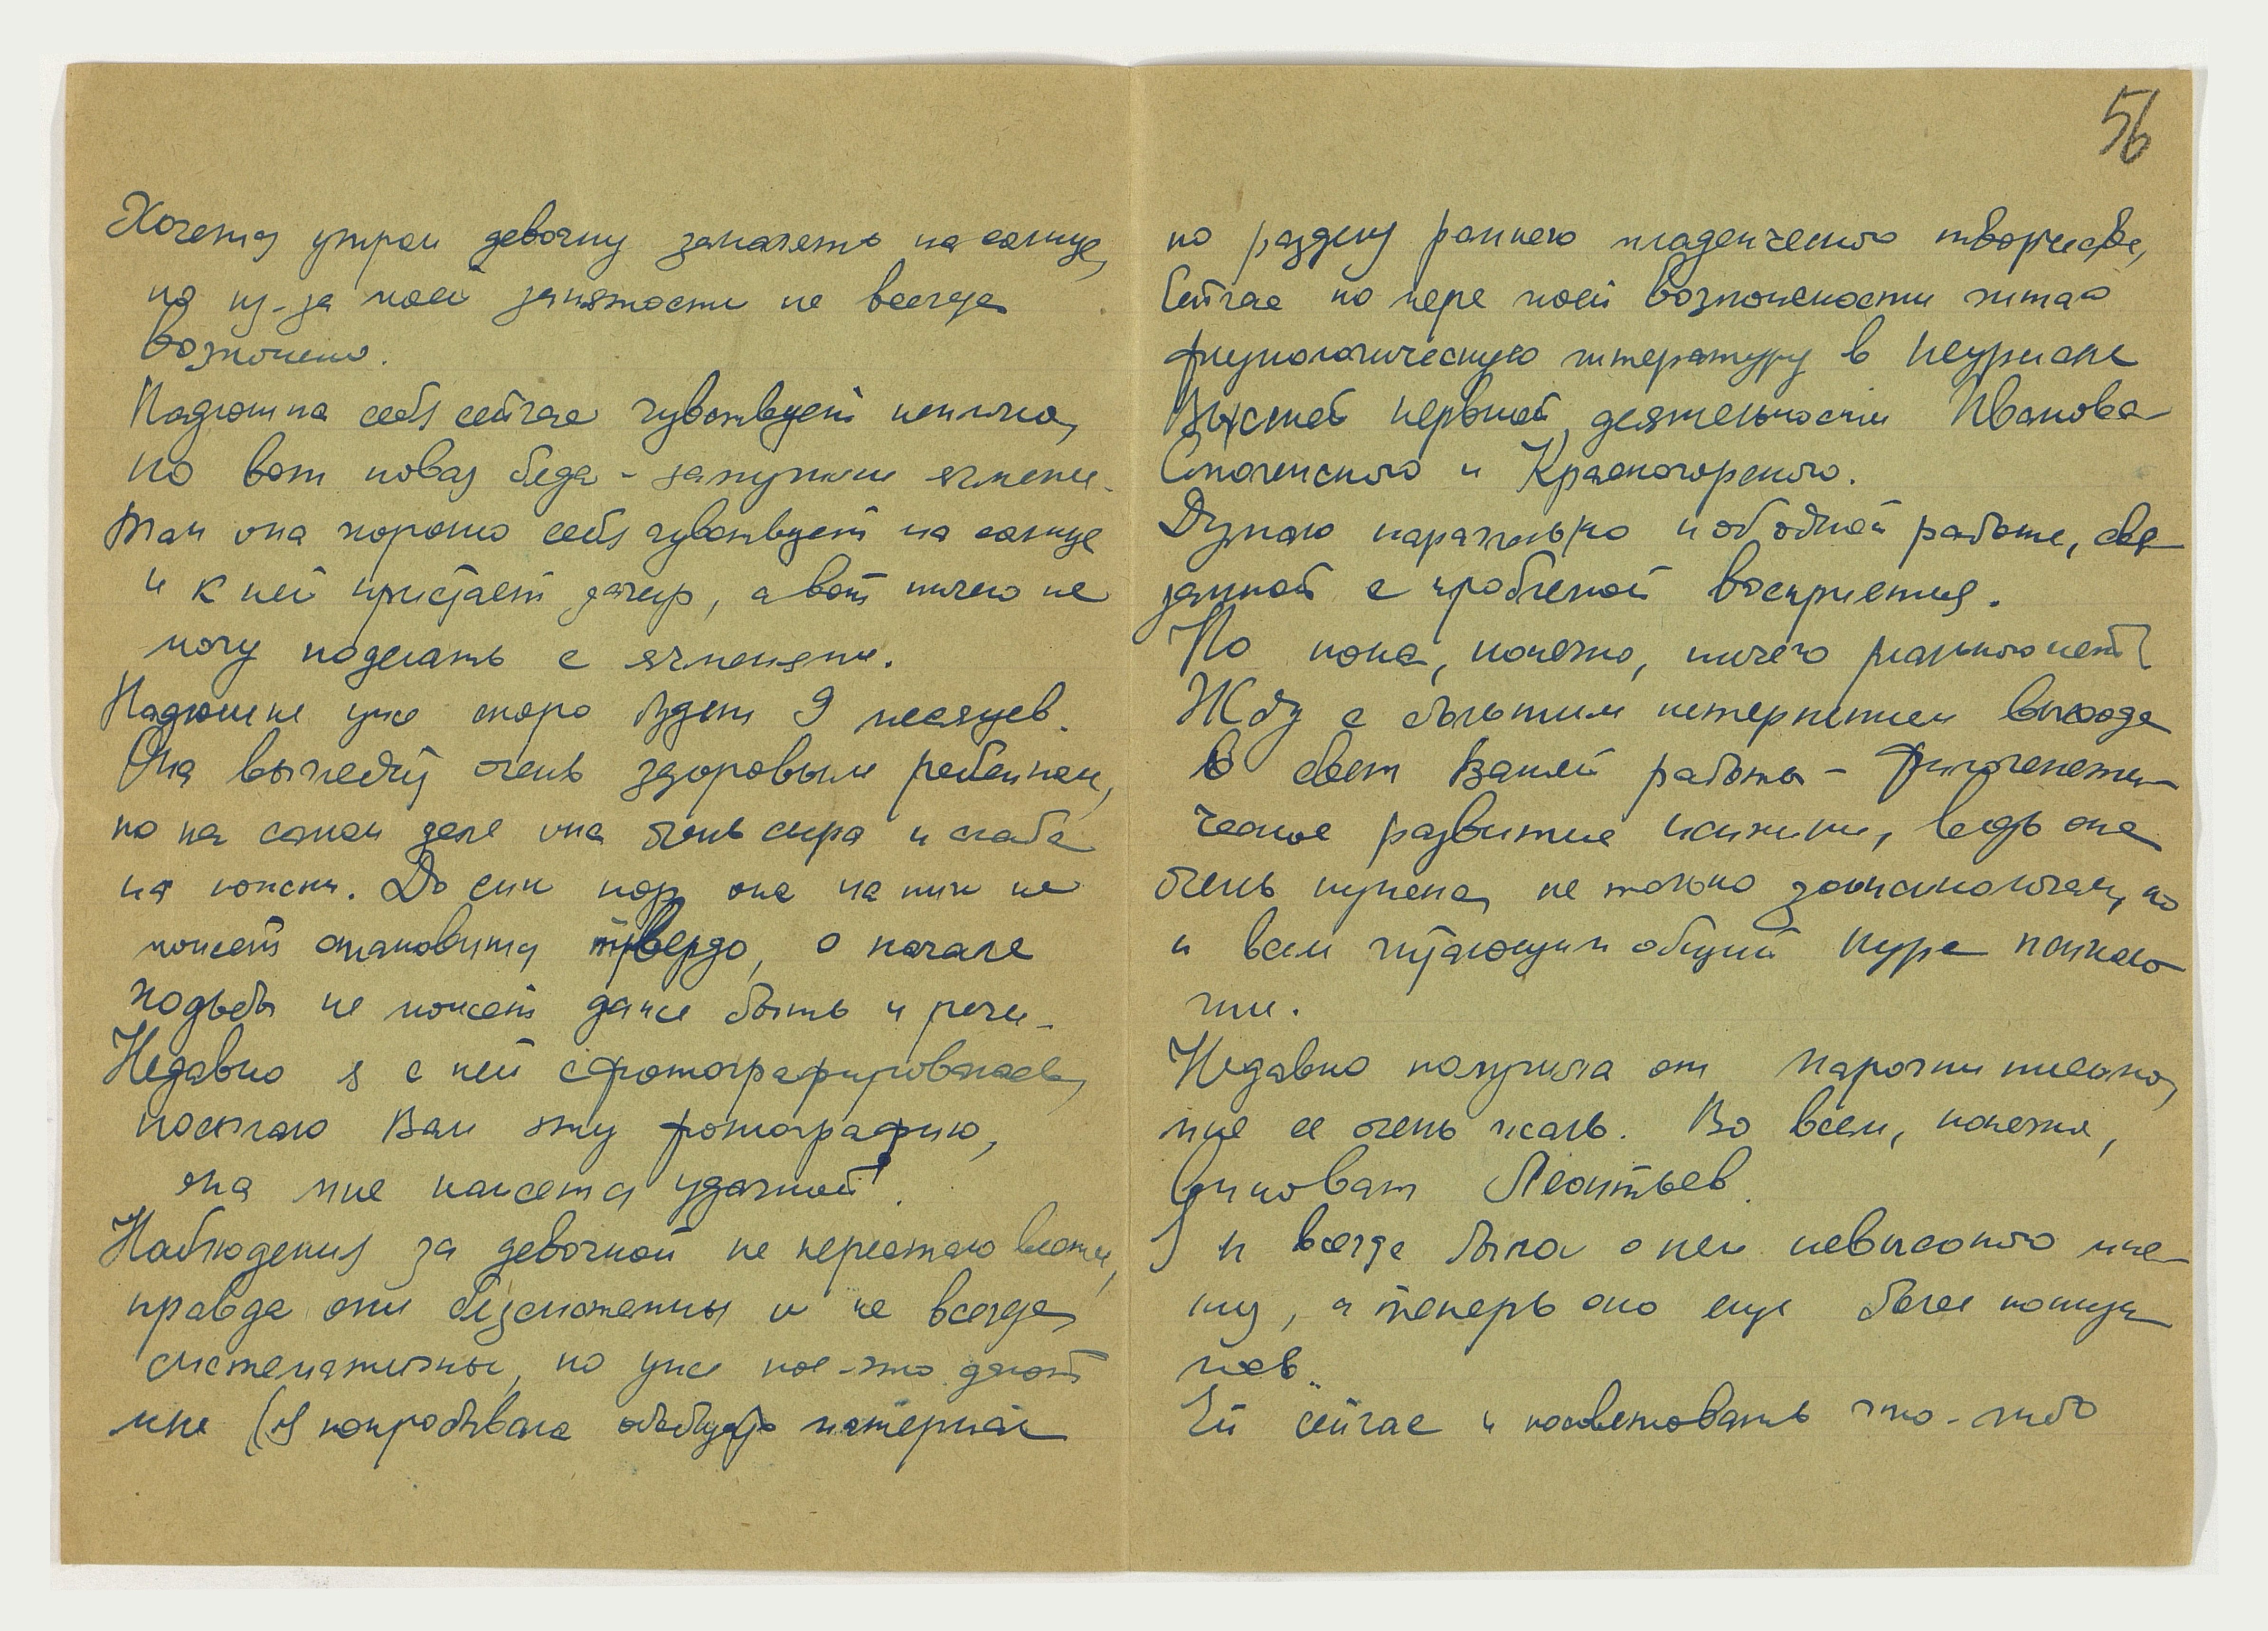 Хочется утром девочку закалять на солнце,
но из-за моей занятости не всегда
возможно.
Надюшка себя сейчас чувствует неплохо,
но вот новая беда - замучили ячмени.
Так она хорошо себя чувствует на солнце
и к ней пристает загар, а вот ничего не
могу поделать с ячменями.
Надюшке уже скоро будет 9 месяцев.
Она выглядит очень здоровым ребенком,
но на самом деле она очень сыра и слаба
на ножки. До сих пор она на них не
может становиться твердо, о начале
ходьбы не может даже быть и речи.
Недавно я с ней сфотографировалась,
посылаю Вам эту фотографию,
она мне кажется удачной!
Наблюдения за девочкой не перестаю вести,
правда они и не всегда
систематичны, но уже кое-что дают
мне (я попробывала материал
56
по разделу раннего младенческого творчества,
Сейчас по мере моей возможности читаю
физиологическую литературу в журнале
Высшей нервной деятельности Иванова-
Смоленского и Красногорского.
Думаю параллельно и об одной работе, свя-
занной с проблемой восприятия.
Но пока, конечно, ничего реального нет
Жду с большим нетерпением выхода
в свет Вашей работы - Филогенети-
ческое развитие психики, ведь она
очень нужена, не только зоопсихологам, но
и всем читающим общий курс психоло-
гии.
Недавно получила от Марочки письмо,
мне ее очень жаль. Во всем, конечно,
виноват Леонтьев.
Я и всегда была о нем невысокого мне-
ния, а теперь оно еще более

Ей сейчас и посоветовать что-либо